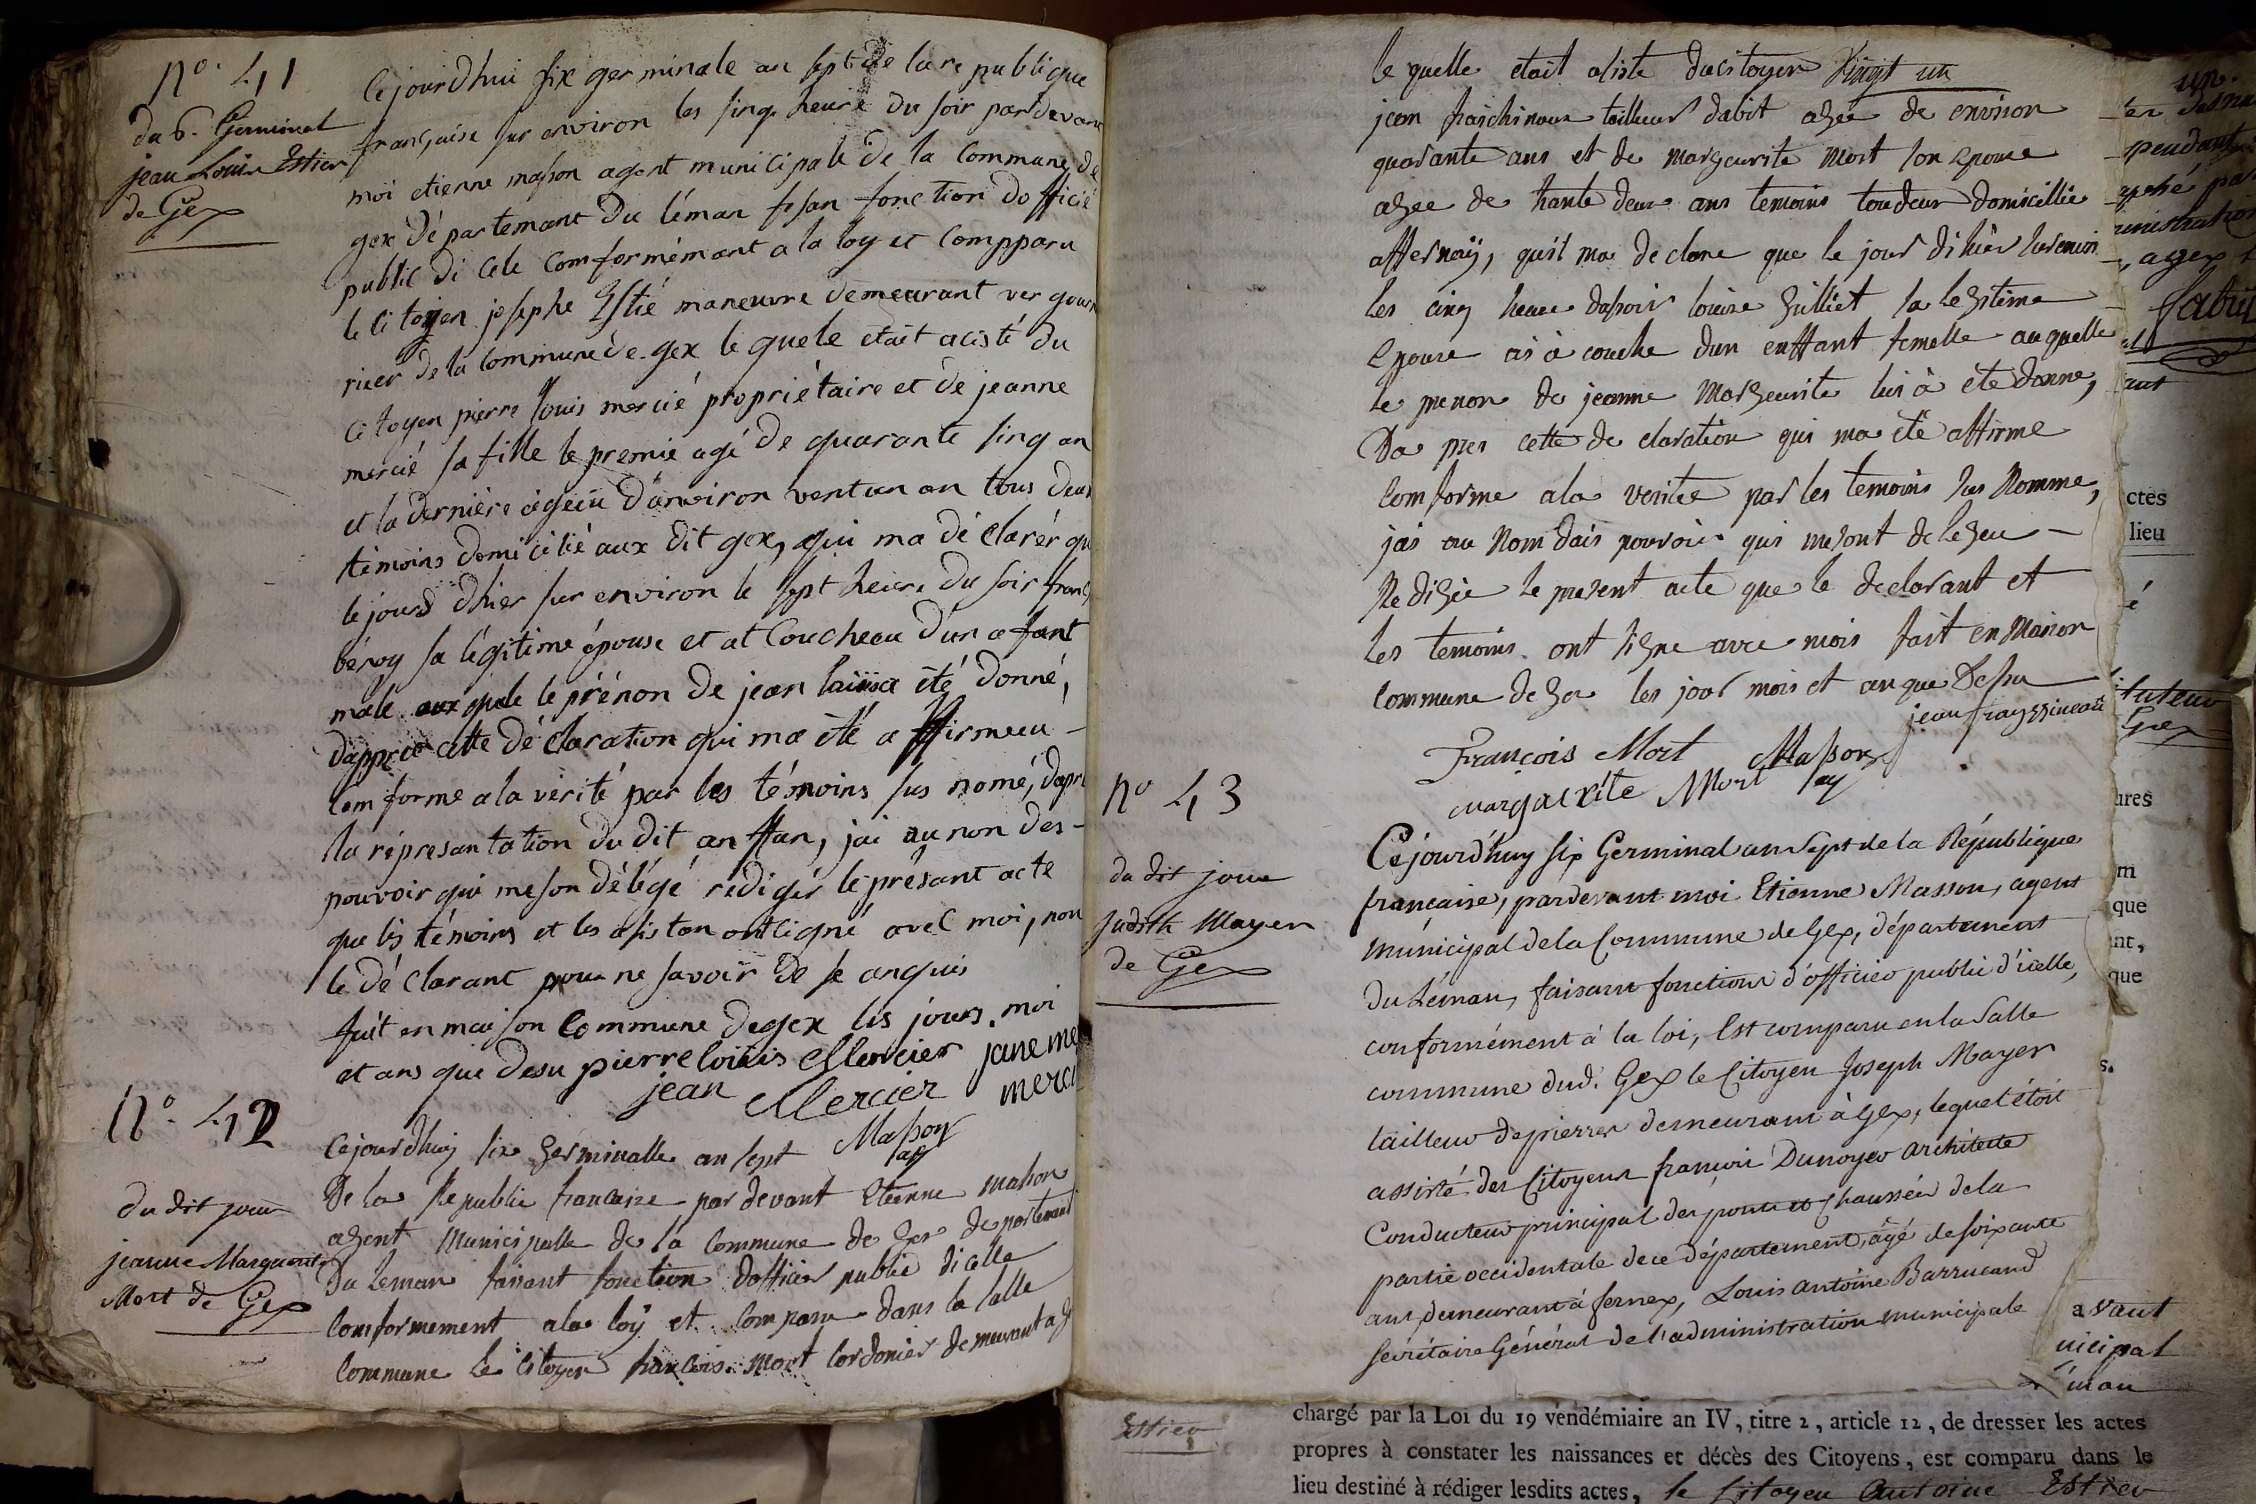 n°. 41
du 6. Germinal
jean Louis Estier
de Gex
Cejourdhui six germinale an sept de lare publique
française sur environ les sinq heure du soir pardevant
moi etienne masson agent municipale de la Commune de
gex département du léman fesan fonction dofficié
public di cele comformémant a la loy et comppara
le citoyen josephe Estié maneuvre demeurant ver gour
rier de la commune de gex le quele était acisté du
citoyen pierre louis mercié propriétaire et de jeanne
mercié sa fille le premié agé de quarante sinq an
et la dernière ageéu d'anviron ventun an tous deux
témoins domicilié aux dit gex, qui ma dé clarér que
le jourd dhier sur environ le sept heure du soir franç
béroy sa légitime épouse et at Coucheau d'un anfant
male auxquele le prénon de jean laiisa été donné,
dapprer cette déclaration qui ma été a ffirmeeu -
comforme a la vérité par les témoins sus nomé, dapré
la réprésantation du dit an ffan, jai au non des -
pouvoir qui me son délégé rédigér le présant acte
que lés témoins et les asistan ont signé avec moi, non
le déclarant pour ne savoir de se anquis
fait en maison commune de gex lés jours. moi
et ans que desu pierre louis Mercier jane me
jean Mercier merci
Masson
ag
N°. 42
du dit jour
jeanne Marguerite
Mort de Gex
Cejourdhuy six germinalle an sept
De la Republic francaise par devant Etienne masson
agent Municipalle de la commune de Gex departement
Du Leman faisant fonction dofficier public dicelle
Comformement ala loÿ et comparu dans la salle
Commune le citoyen francois mort cordonier demeurant a g
le quelle etait asisté du citoyen Vingt un
jean fraichinaux tailleur dabit agée de environ
quarante ans et de margeurite Mort son epouse
agee de trante deux ans temoins toudeux domicillie
affernaÿ, qu'il ma declare que le jour dihier surenviron
les cinq heure dusoir louise Gulliet sa legitime
Epouse as à couche dun enffant femelle auquelle
le prenon de jeanne Margeurite lui à ete donne,
Da pres cette de claration qui ma été affirme
Comforme ala veritee par les temoins sus Nomme,
jai au Nom dais pouvoir qui mesont delegeu -
Redigée le present acte que le declarant et
les temoins ont signe avec mois fait en Maison
Commune de Gex les jour mois et an que Dessu
jean frayssineau
François Mort Masson
ag
margaeritte Mort
n° 43
du dit jour
Judith Mayer
de Gex
Cejourd'huy six Germinal an Sept de la République
française, pardevant moi Etienne Masson, agent
municipal de la Commune de Gex, département
du Léman, faisant fonctions d'officier public d'icelle,
conformément à la loi, Est comparu en la Salle
commune dud. Gex le Citoyen Joseph Mayer
tailleur de pierres demeurant à Gex, lequel étoit
assisté des Citoyens françois Dunoyer architecte
Conducteur principal des ponts et Chaussées de la
partie occidentale de ce département, âgé de soixante
ans, demeurant à fernex, Louis antoine Barrucand
Secrétaire Général de l'administration municipale
un.
pendant
, agex
ant
ctes
lieu
é
tuteur
Gex
ures
m
que
nt,
que
s.
avant
nicipal
éman
Estieu
chargé par la Loi du 19 vendémiaire an IV, titre 2, article 12, de dresser les actes
propres à constater les naissances et décès des Citoyens, est comparu dans le
lieu destiné à rédiger lesdits actes, le Citoyen Antoine Estieu